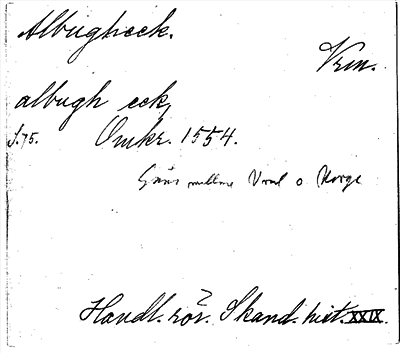 Albugheeck.
Vrm.
albugh eek,
s. 75. Omkr. 1554.
Gräns mellan Vrml o Norge
Handl. rör. Skand. hist. XXIX.